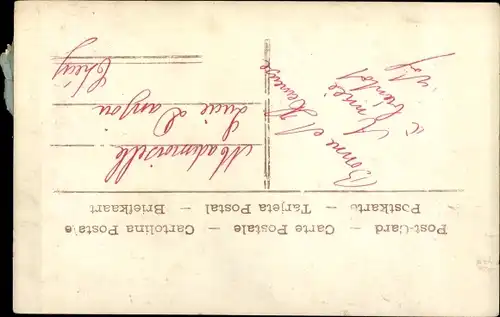 Post-Card — Carte Postale — Cartolina Postale
Postkarte — Tarjeta Postal — Briefkaart
Bonne et
Heureuse
Année
à bientôt
Mademoiselle
Lucie Danjou